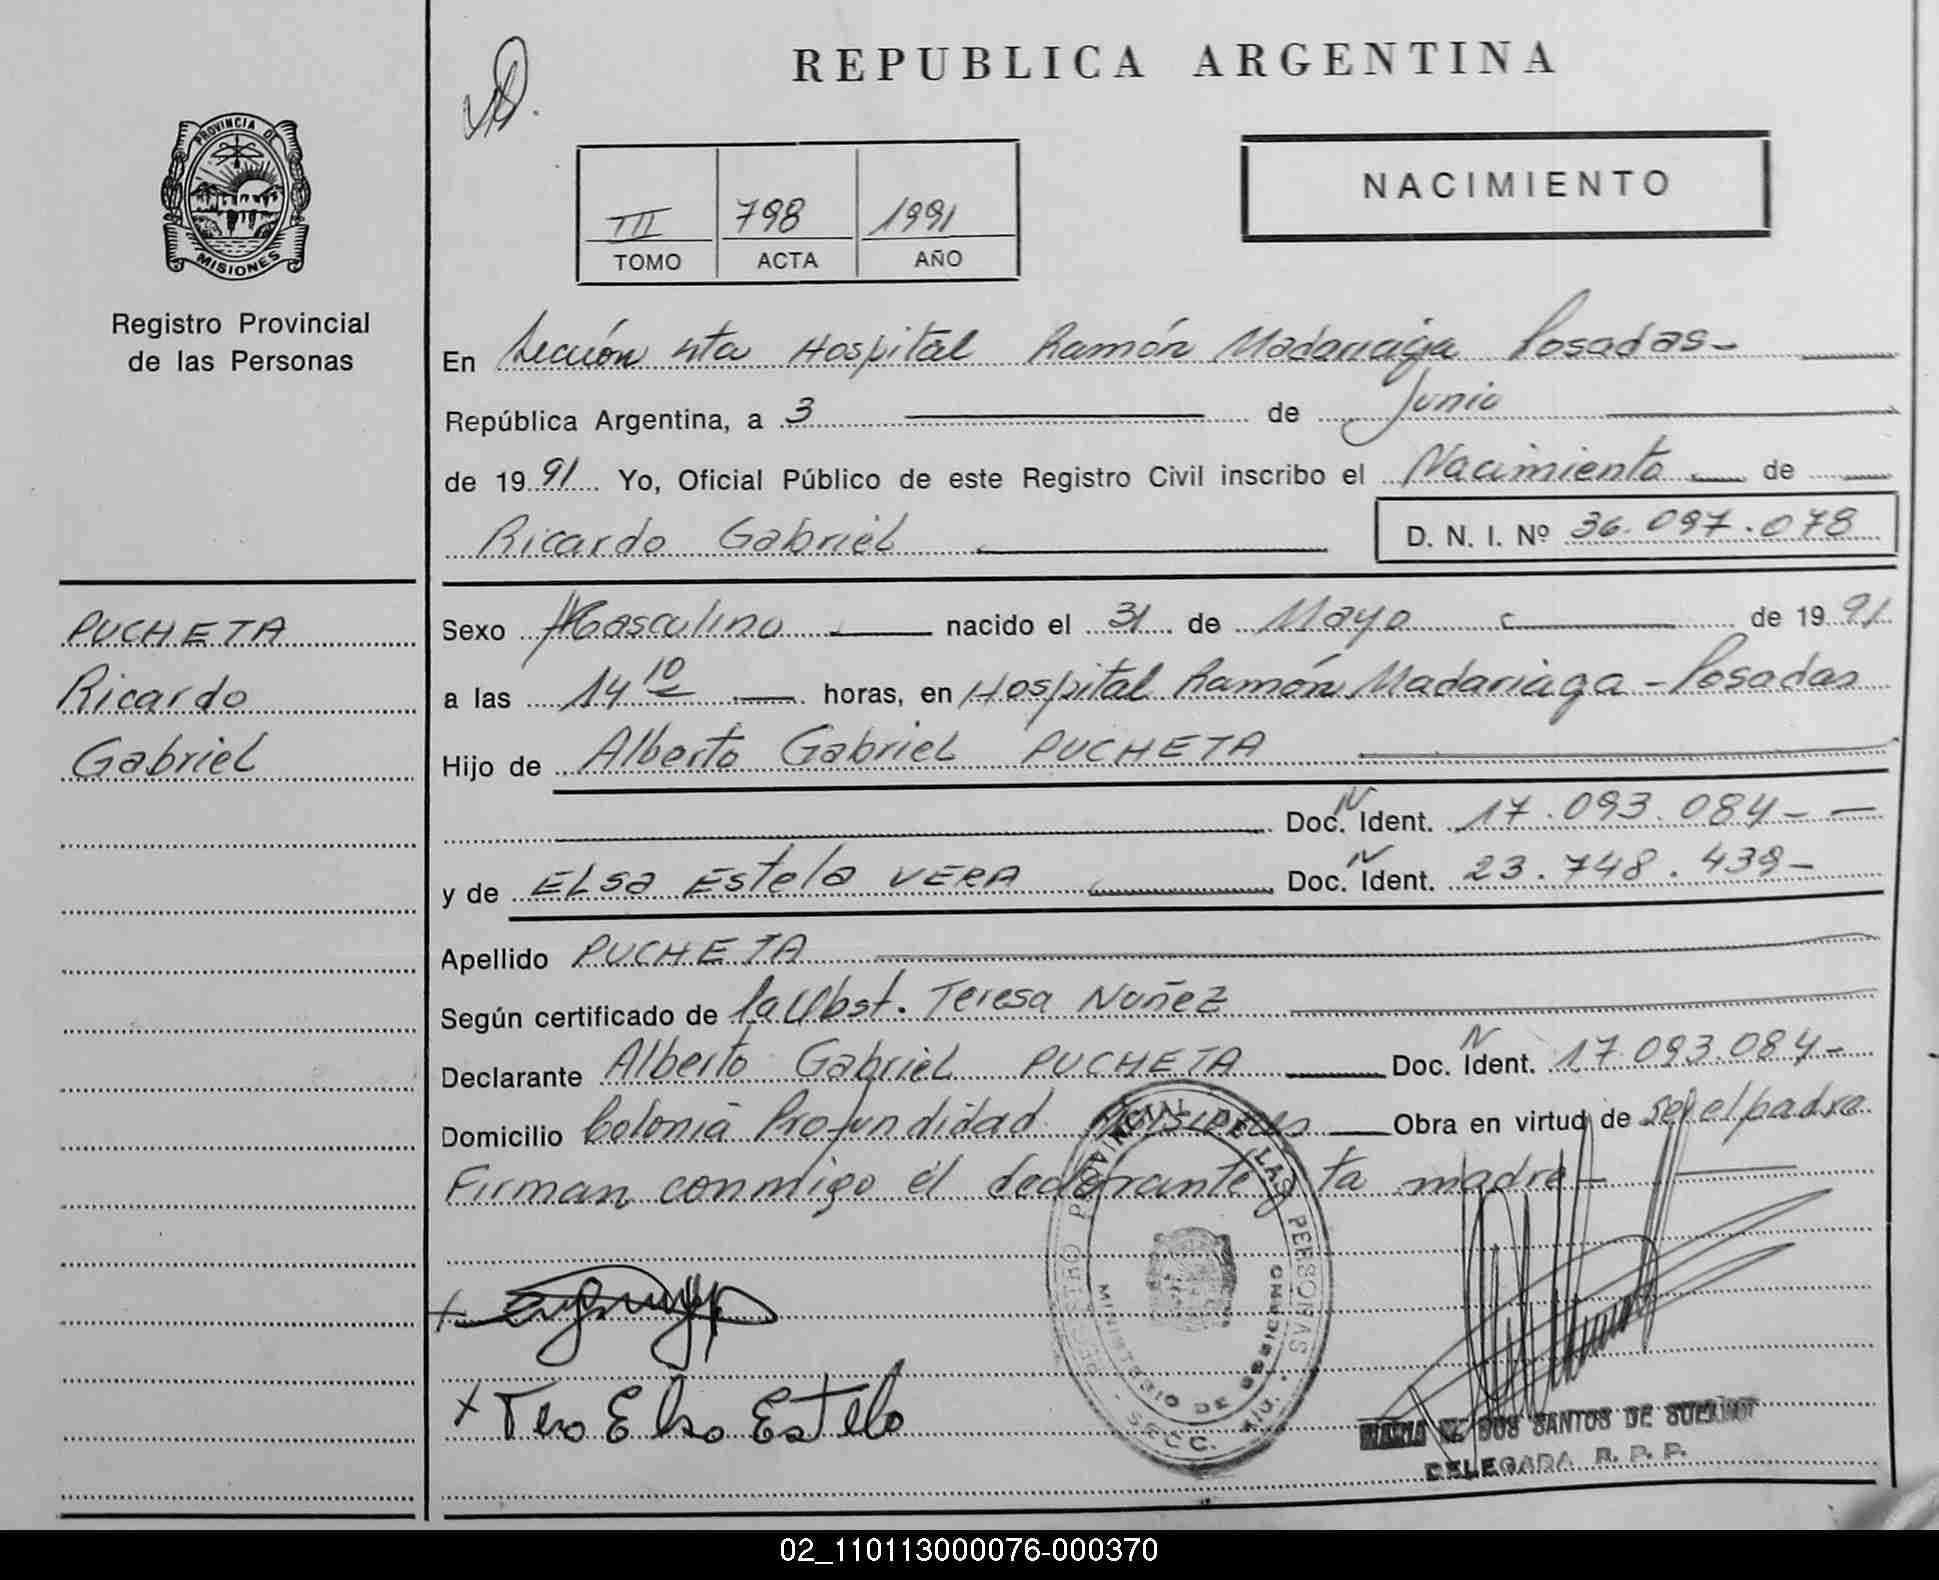 REPUBLICA ARGENTINA
PROVINCIA DE
MISIONES
Registro Provincial
de las Personas
III 798 1991
TOMO ACTA AÑO
NACIMIENTO
En Sección 4ta Hospital Ramón Madariaga Posadas-
República Argentina, a 3 de Junio
de 1991 Yo, Oficial Público de este Registro Civil inscribo el Nacimiento de
Ricardo Gabriel D. N. I. Nº 36.097.078
PUCHETA
Ricardo
Gabriel
Sexo Masculino nacido el 31 de Mayo de 1991
a las 14 10 horas, en Hospital Ramón Madariaga - Posadas
Hijo de Alberto Gabriel PUCHETA
Doc. N Ident. 17.093.084-
y de ELSa Estela VERA Doc. N Ident. 23.748.439-
Apellido PUCHETA
Según certificado de la Obst. Teresa Nuñez
Declarante Alberto Gabriel PUCHETA Doc. N Ident. 17.093.084-
Domicilio Colonia Profundidad Misiones Obra en virtud de ser el padre
Firman conmigo el declarante y la madre-
REGISTRO PROVINCIAL DE LAS PERSONAS
MINISTERIO DE GOBIERNO
SECC. 4ta.
x Vera Elsa Estela
DOS SANTOS DE
DELEGADA R. P. P.
02_110113000076-000370